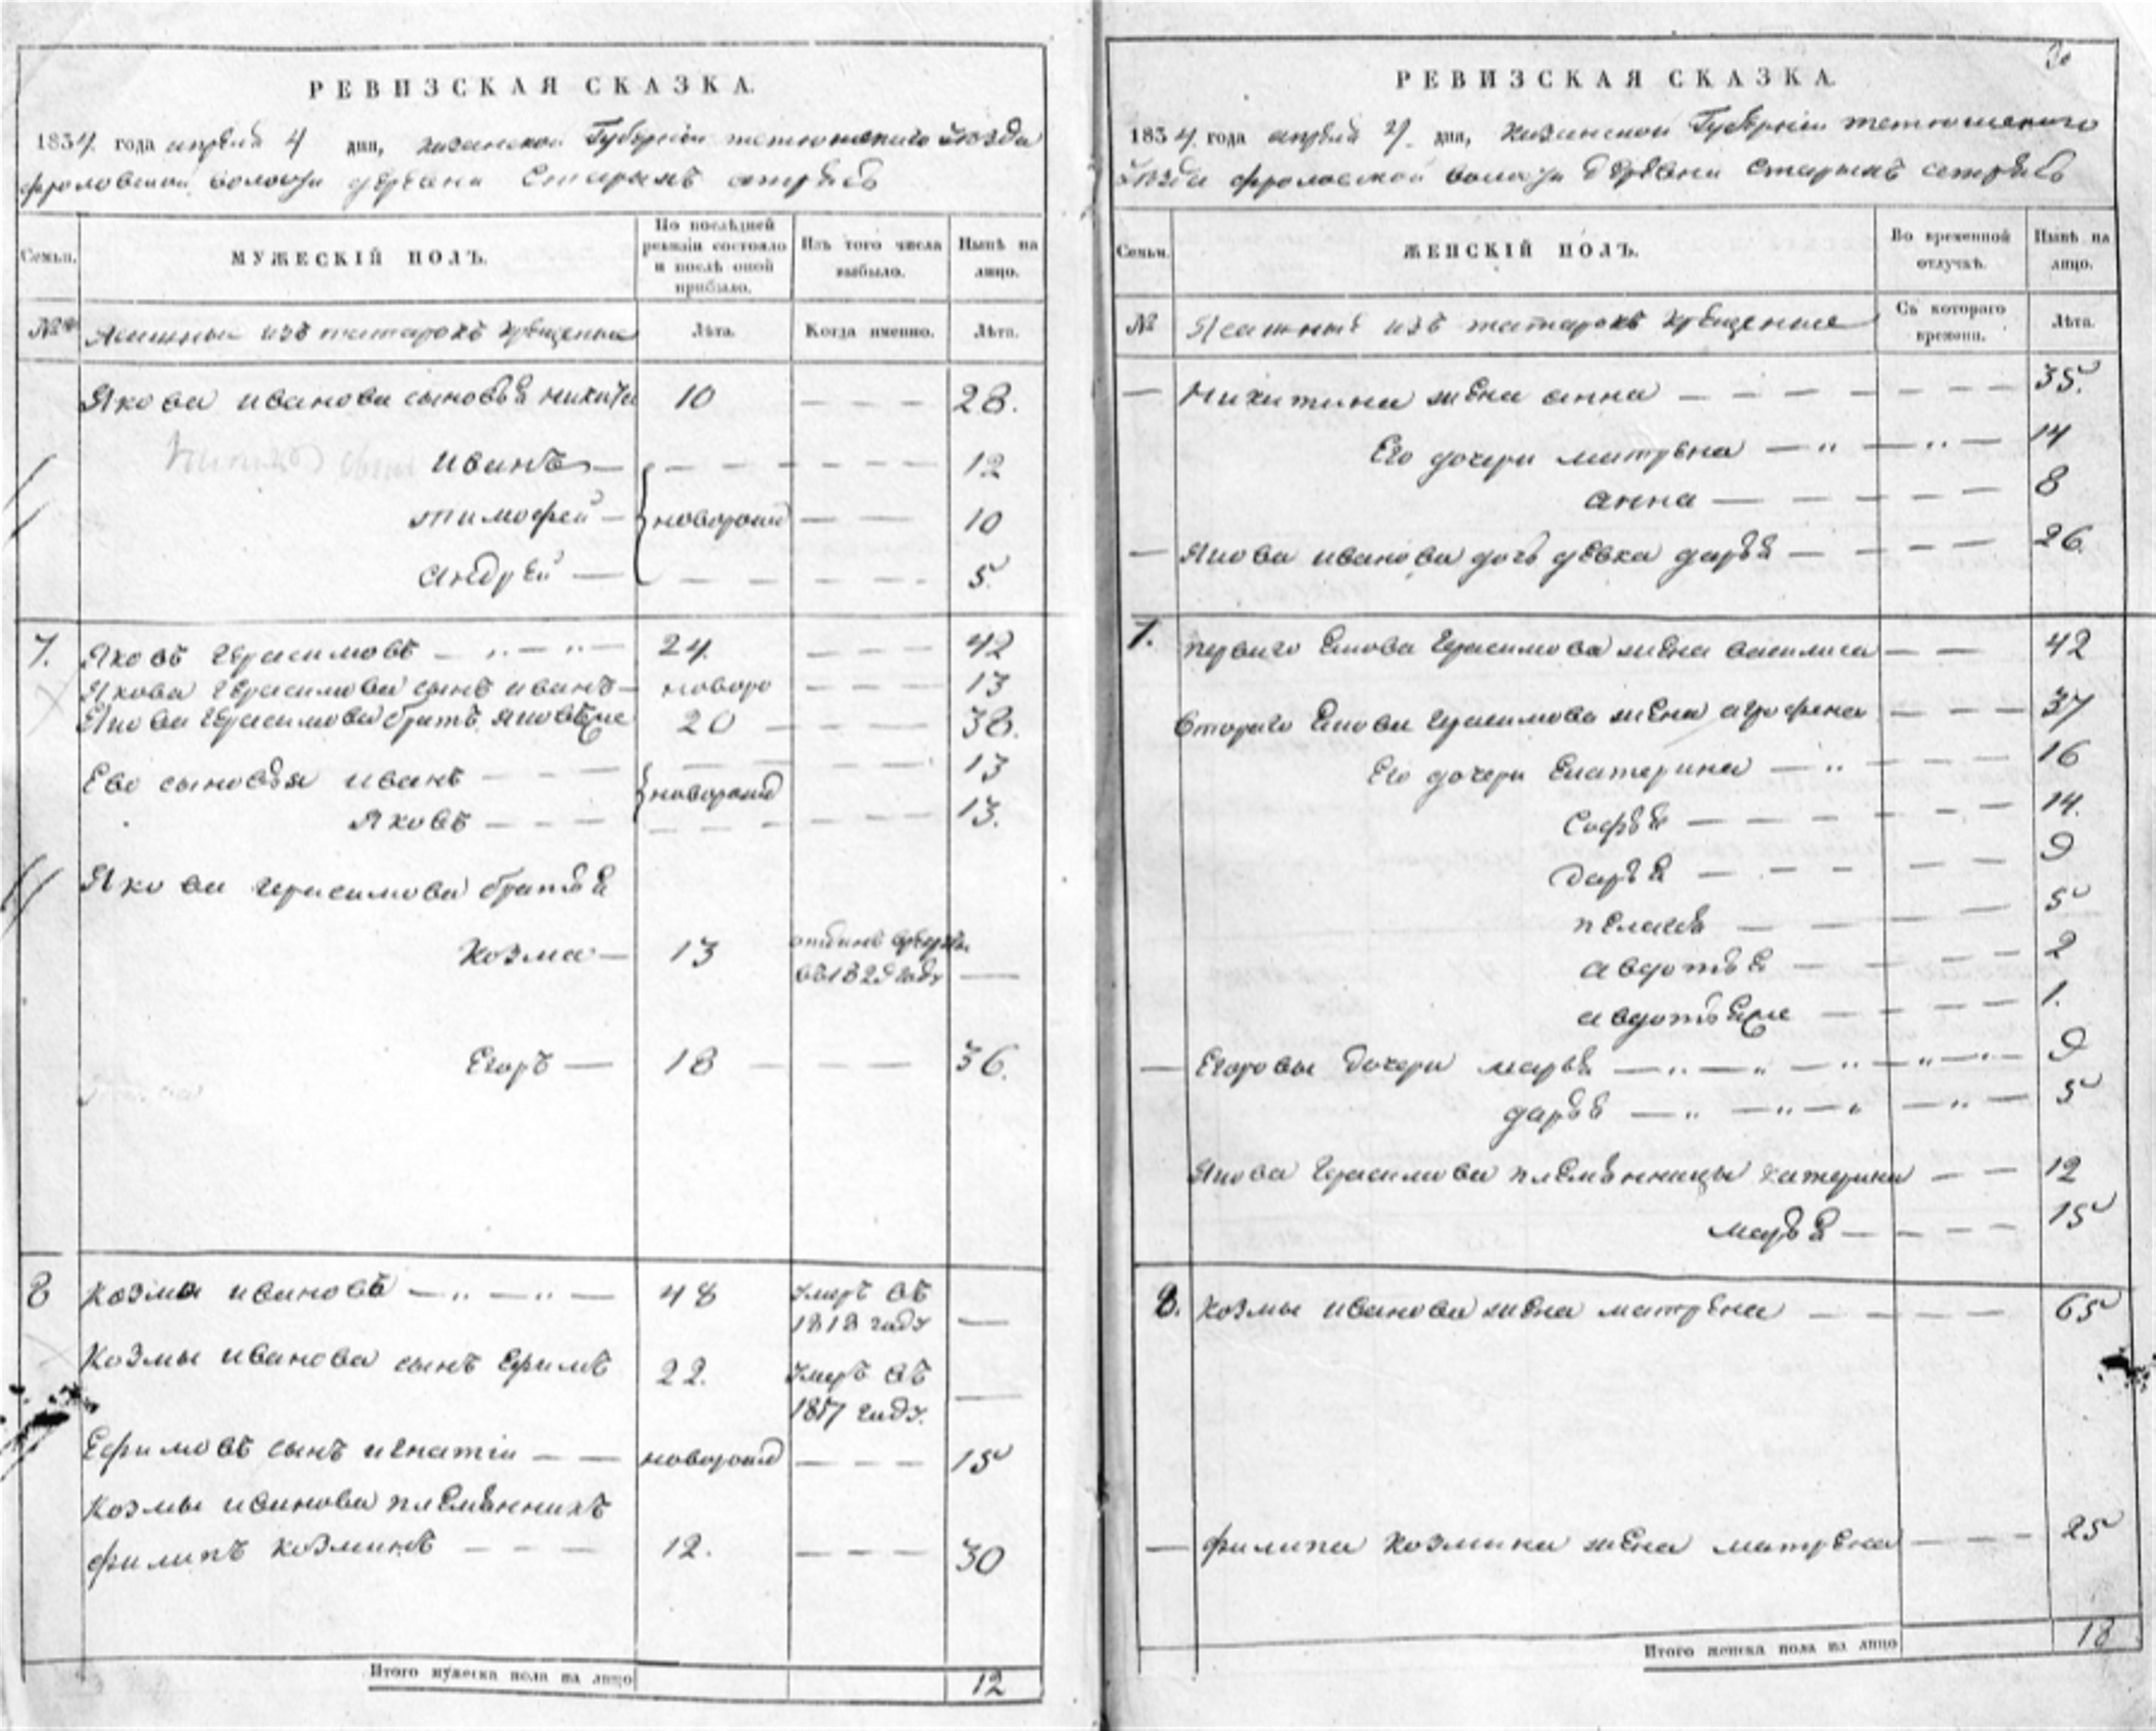 РЕВИЗСКАЯ СКАЗКА.
1834 года апреля 4 дня, казанской Губерніи тетюшскаго Уезда
фроловской волости деревни Старыхъ
Семьи.
МУЖЕСКІЙ ПОЛЪ.
По послѣдней ревизіи состояло и послѣ оной прибыло.
Изъ того числа выбыло.
Нынѣ на лицо.
№
Ясашныи изъ татаръ крещенныя
Лѣта.
Когда именно.
Лѣта.
Якова иванова сыновья никита 10 — — — 28.
иванъ — — — — 12
тимофей — новорожд — — 10
Андрей — — — — 5.
7. Яковъ Герасимовъ — „ — „ — 24. — — — 42
Якова Герасимова сынъ иванъ — новоро — — — 13
Якова Герасимова братъ яковъ же 20 — — — 38.
Ево сыновья иванъ — — — новорожд — — — 13
Яковъ — — — — — — 13.
Якова Герасимова братья
Козма — 13 отданъ в рекруты
въ 1829 году —
Егоръ — 18 — — — 36.
8 Козма ивановъ — „ — „ — 48 Умеръ въ
1818 году —
Козмы иванова сынъ Ефимъ 22. Умеръ въ
1817 году. —
Ефимовъ сынъ игнатіи — — новорожд — — — 15
Козмы иванова племянникъ
филипъ козминъ — — — 12. — — — 30
Итого мужеска пола на лицо 12
30
РЕВИЗСКАЯ СКАЗКА.
1834 года апреля 4. дня, казанской Губерніи тетюшскаго
Уезда фроловской волости деревни старыхъ
Семьи.
ЖЕНСКІЙ ПОЛЪ.
Во временной отлучкѣ.
Нынѣ на лицо.
№
Ясашныя изъ татаръ крещеные
Съ котораго времени.
Лѣта.
— Никитина жена анна — — — — — — 35.
Его дочери матрена — „ — „ — 14
анна — — — — — 8
— Якова иванова дочь девка дарья — — — — 26.
7. первого Якова Герасимова жена василиса — — 42
Второго Якова Герасимова жена агрофена — — — 37
Его дочери Екатерина — „ — — — 16
Софья — — — — — — 14.
Дарья — — — — — — 9
пелагея — — — — 5
авдотья — — — — — 2
авдотья же — — — — 1.
— Егоровы дочери марья — „ — „ — „ — „ — 9
дарья — „ — „ — „ — „ — 5
Якова Герасимова племянницы катерина — — 12
марья — — — — 15
8. Козмы иванова жена матрена — — — — 65
— филипа козмина жена матрена — — — 25
Итого женска пола на лицо 18